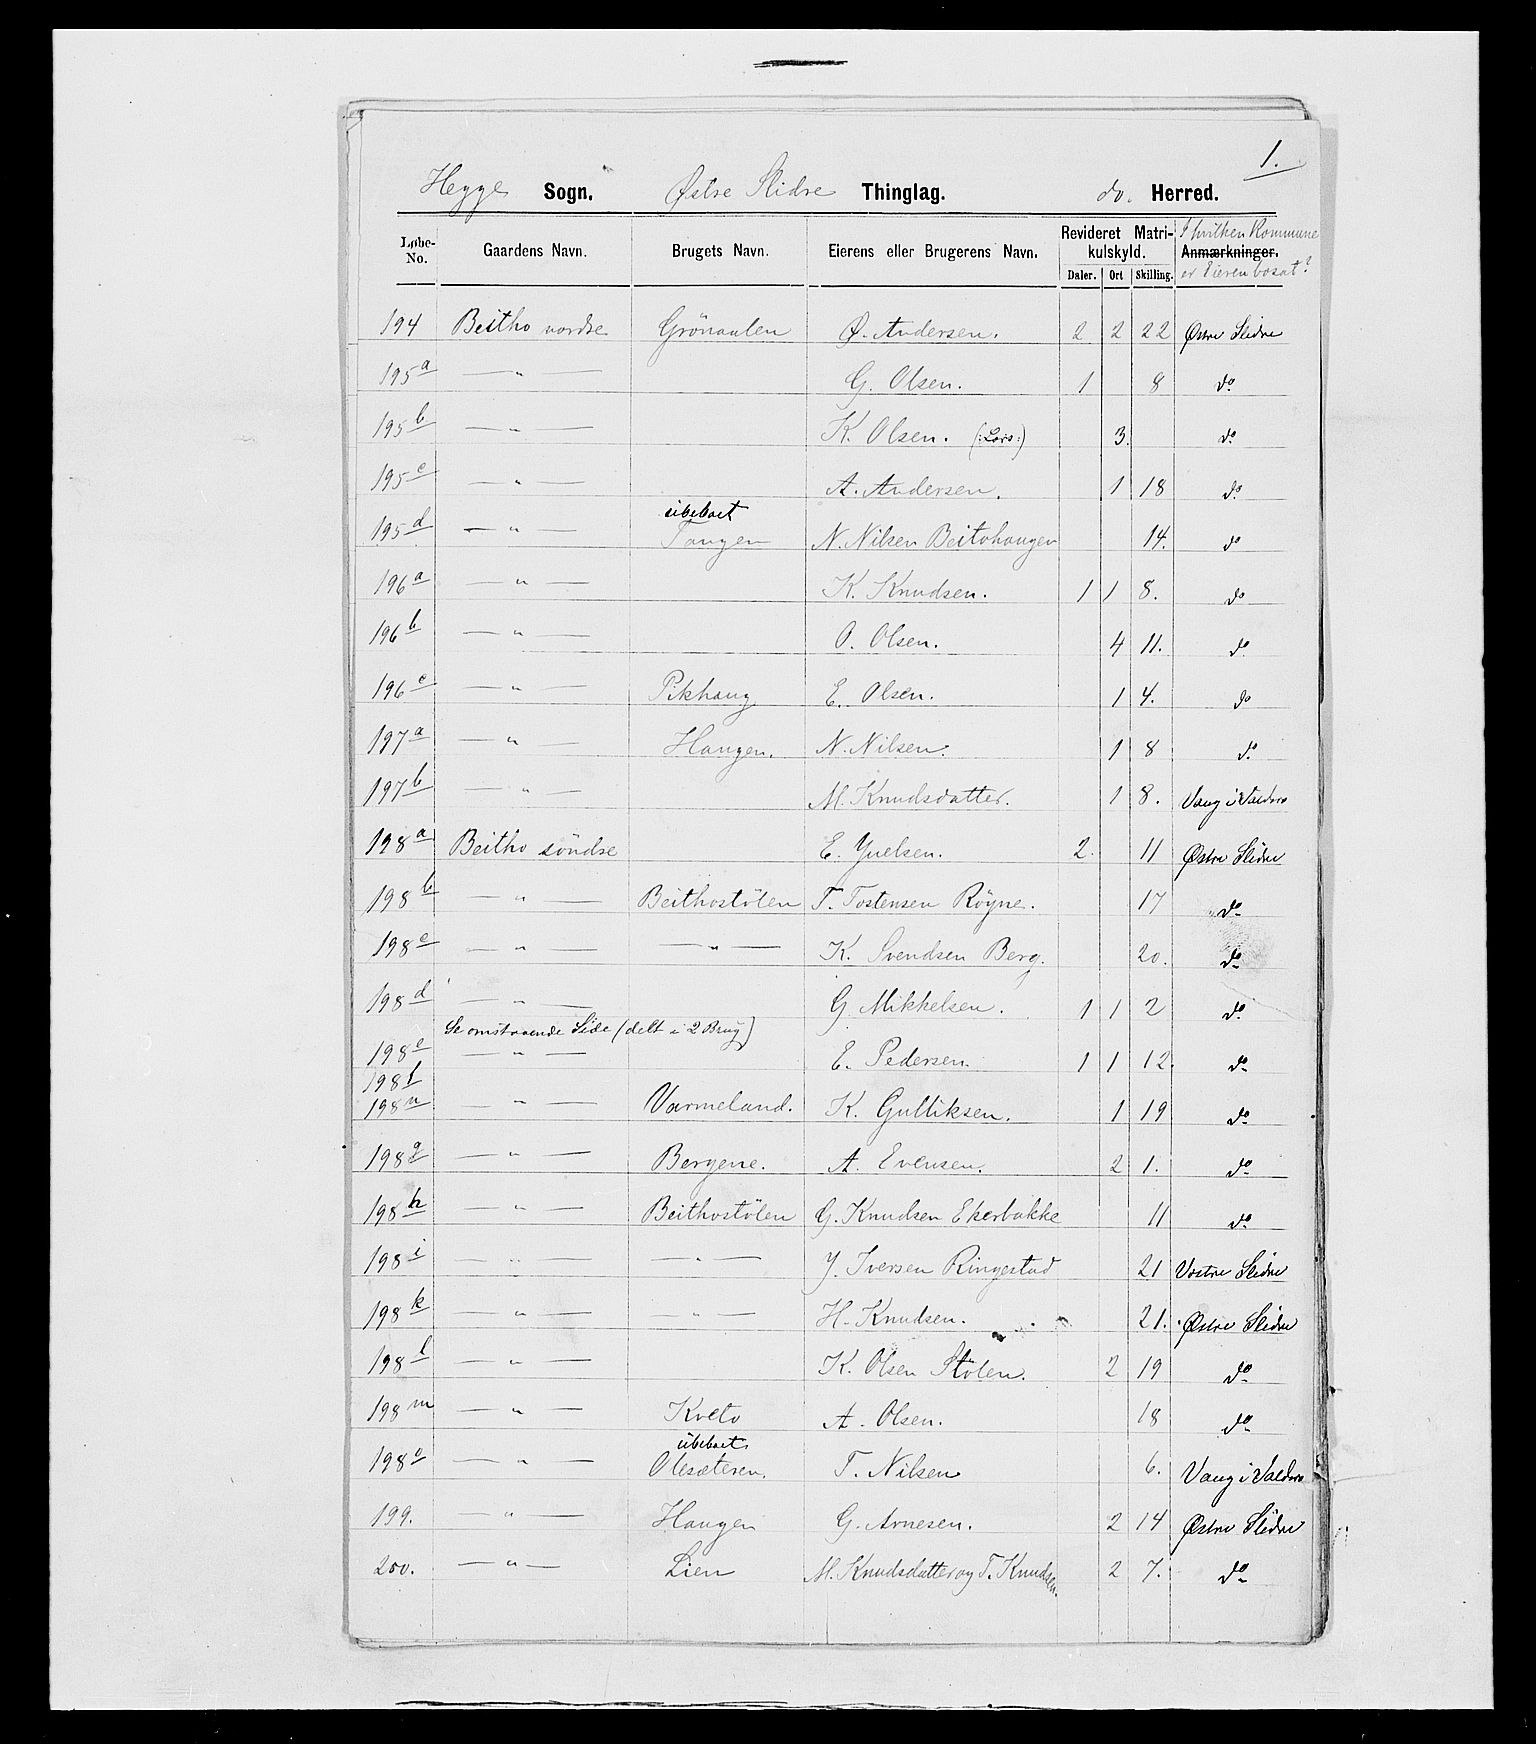 1.
Hegge Sogn. Østre Slidre Thinglag. do. Herred.
Løbe-No. Gaardens Navn. Brugets Navn. Eierens eller Brugerens Navn. Revideret Matrikulskyld. Daler. Ort Skilling. Anmærkninger. I hvilken Kommune er Eieren bosat?
194 Beitho nordre Grönaalen Ø. Andersen. 2 2 22 Østre Slidre
195 a — " — G. Olsen. 1 8 do
195 b — " — K. Olsen. (: Lars :) 3. do
195 c — " — A. Andersen. 1 18 do
ubeboet
195 d — " — Tangen N. Nilsen Beitohaugen 14. do
196 a — " — K. Knudsen. 1 1 8. do
196 b — " — O. Olsen. 4 11. do
196 c — " — Pikhaug E. Olsen. 1 4. do
197 a — " — Haugen. N. Nilsen. 1 8 do
197 b — " — M. Knudsdatter. 1 8. Vang i Valdres
198 a Beitho söndre E. Juelsen. 2. 11 Østre Slidre
198 b — " — Beithostölen T. Tostensen Röyne. 17 do
198 c — " — — " — K. Svendsen Berg. 20. do
198 d — " — G. Mikkelsen. 1 1 2 do
Se omstaaende Side (delt i 2 Brug)
198 e — " — E. Pedersen. 1 1 12. do
198 f
198 n — " — Varmeland. K. Gulliksen. 1 19 do
198 g — " — Bergene. A. Evensen. 2 1. do
198 h — " — Beithostölen G. Knudsen Ekerbakke 11 do
198 i — " — — " — J. Iversen Ringestad 21 Vestre Slidre
198 k — " — — " — H. Knudsen. 21. Østre Slidre
198 l — " — K. Olsen Stölen. 2 19 do
198 m — " — Kveto A. Olsen. 18 do
ubeboet
198 o — " — Olesæteren. T. Nilsen 6. Vang i Valdres
199. — " — Haugen G. Arnesen. 2 14 Østre Slidre
200. — " — Lien M. Knudsdatter og T. Knudsen. 2 7. do